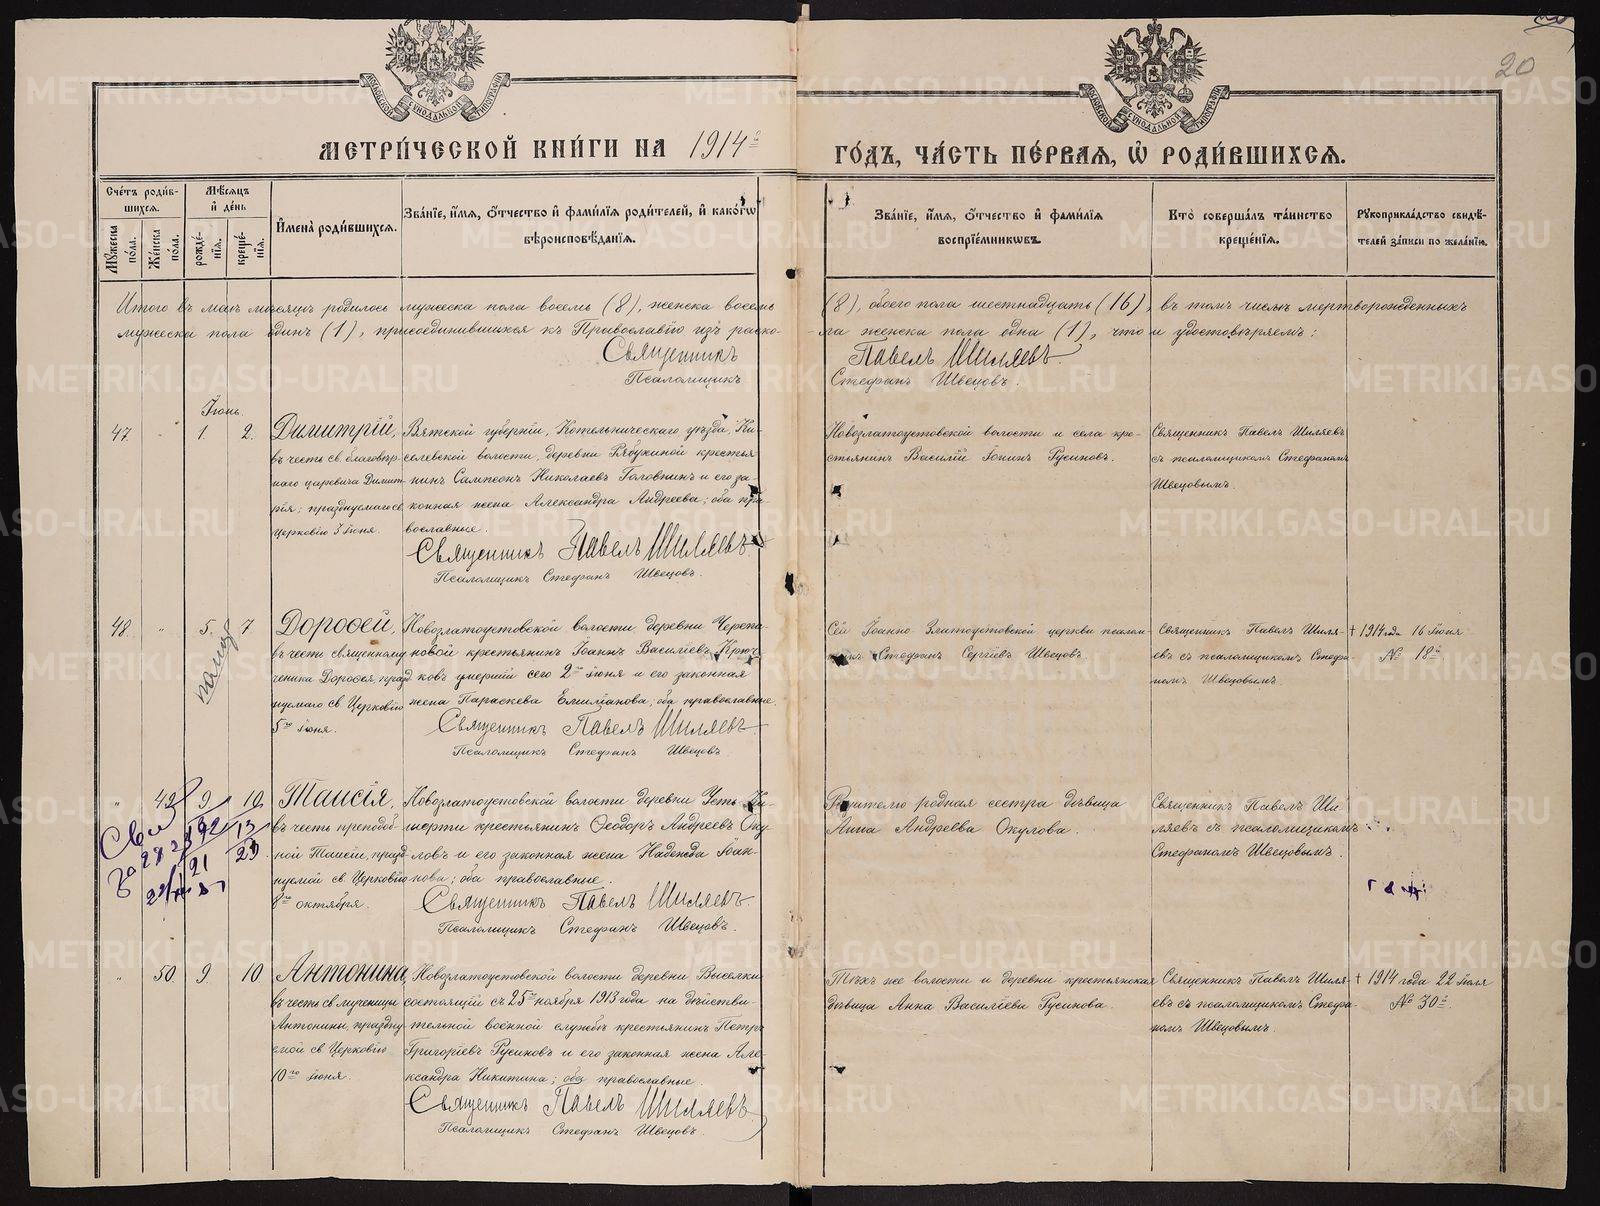 20
МОСКОВСКОЙ СѴНОДАЛЬНОЙ ТИПОГРАФІИ
МОСКОВСКОЙ СѴНОДАЛЬНОЙ ТИПОГРАФІИ
МЕТРИ́ЧЕСКОЙ КНИ́ГИ НА 1914 й ГО́ДЪ, ЧА́СТЬ ПЕ́РВАЯ, Ѡ҆ РОДИ́ВШИХСЯ.
Сче́тъ роди́в-
шихся.
Мꙋжеска по́ла.
Же́нска по́ла.
Мѣ́сяцъ
и҆ де́нь
рожде́-
нїя.
креще́-
нїя.
И҆мена̀ роди́вшихся.
Зва́нїе, и҆́мя, ѻ҆́тчество и҆ фами́лїя роди́телей, и҆ како́гѡ
вѣроисповѣ́данїя.
Зва́нїе, и҆́мя, ѻ҆́тчество и҆ фами́лїя
воспрїе́мниковъ.
Кто̀ соверша́лъ та́инство
креще́нїя.
Рꙋкоприкла́дство свидѣ́-
телей за́писи по жела́нїю.
Итого въ маѣ мѣсяцѣ родилось мужеска пола восемь (8), женска восемь (8), обоего пола шестнадцать (16), въ томъ числѣ мертворожденныхъ
мужеска пола одинъ (1), присоединившихся къ Православію изъ раско-ла женска пола одна (1), что и удостовѣряемъ:
Священникъ Павелъ Шиляевъ
Псаломщикъ Стефанъ Швецовъ.
Іюнь.
47. 1. 2.
Димитрій,
въ честь св. благовѣр-
наго царевича Димит-
рія; празднуемаго св.
церковію 3 іюня.
Вятской губерніи, Котельническаго уѣзда, Ки-
селевской волости, деревни Рябухиной крестья-
нинъ Сампсонъ Николаевъ Головнинъ и его за-
конная жена Александра Андреева; оба пра-
вославные.
Священникъ Павелъ Шиляевъ
Псаломщикъ Стефанъ Швецовъ.
Новозлатоустовской волости и села кре-
стьянинъ Василій Іонинъ Русиновъ.
Священникъ Павелъ Шиляевъ
съ псаломщикомъ Стефаномъ
Швецовымъ.
48. " 5. 7
Дорофей,
въ честь священному-
ченика Дорофея, празд-
нуемаго св. Церковію
5го іюня.
Новозлатоустовской волости деревни Черепа-
новой крестьянинъ Іоаннъ Василіевъ Крюч-
ковъ умершій сего 2го іюня и его законная
жена Параскева Емиліанова; оба православные.
Священникъ Павелъ Шиляевъ
Псаломщикъ Стефанъ Швецовъ
Сей Іоанно-Златоустовской церкви псалом-
щикъ Стефанъ Сергіевъ Швецовъ.
Священникъ Павелъ Шиля-
евъ съ псаломщикомъ Стефа-
номъ Швецовымъ.
† 1914 года 16 іюня
№ 18й
" 49 9 10
Таисія,
въ честь преподоб-
ной Таисіи, празд-
нуемой св. Церковію
8го октября.
Новозлатоустовской волости деревни Усть-Ки-
шерти крестьянинъ Ѳеодоръ Андреевъ Оку-
ловъ и его законная жена Надежда Іоан-
нова; оба православные.
Священникъ Павелъ Шиляевъ
Псаломщикъ Стефанъ Швецовъ.
Родителю родная сестра дѣвица
Анна Андреева Окулова.
Священникъ Павелъ Ши-
ляевъ съ псаломщикомъ
Стефаномъ Швецовымъ.
" 50. 9. 10
Антонина,
въ честь св. мученицы
Антонины, праздну-
емой св. Церковію
10го іюня.
Новозлатоустовской волости деревни Выселки
состоящій съ 25го ноября 1913 года на дѣйстви-
тельной военной службѣ крестьянинъ Петръ
Григоріевъ Русиновъ и его законная жена Але-
ксандра Никитина; оба православные.
Священникъ Павелъ Шиляевъ
Псаломщикъ Стефанъ Швецовъ.
Тѣхъ же волости и деревни крестьянская
дѣвица Анна Василіева Русинова.
Священникъ Павелъ Шиля-
евъ съ псаломщикомъ Стефа-
номъ Швецовымъ.
† 1914 года 22 іюля
№ 30й
METRIKI.GASO-URAL.RU